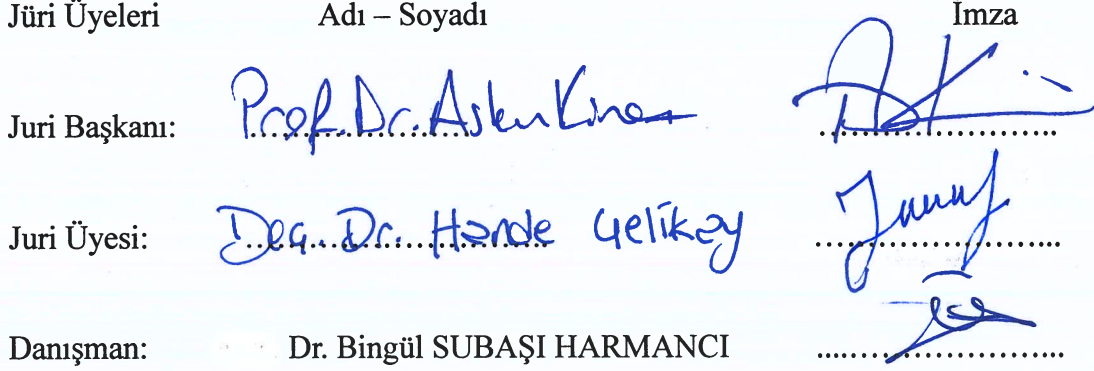 Jüri Üyeleri Adı – Soyadı İmza
Juri Başkanı: Prof. Dr. Aşkın
Juri Üyesi: Doç. Dr. Hande Çelikay
Danışman: Dr. Bingül SUBAŞI HARMANCI